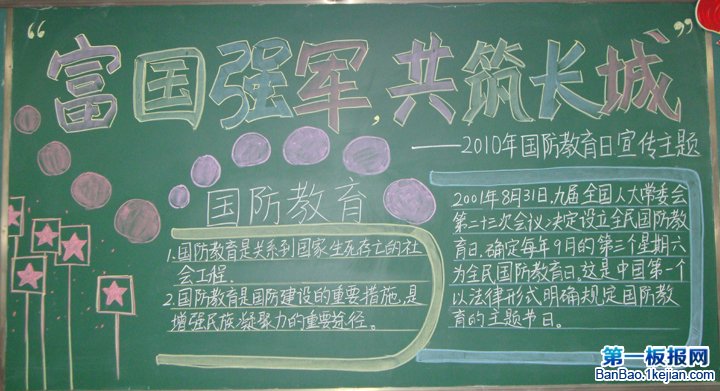 “富国强军，共筑长城”
——2010年国防教育日宣传主题
国防教育
1.国防教育是关系到国家生死存亡的社
会工程.
2.国防教育是国防建设的重要措施,是
增强民族凝聚力的重要途径。
2001年8月31日,九届全国人大常委会
第二十三次会议,决定设立全民国防教
育日.确定每年9月的第三个星期六
为全民国防教育日.这是中国第一个
以法律形式明确规定国防教
育的主题节日。
第一板报网
BanBao.1kejian.com